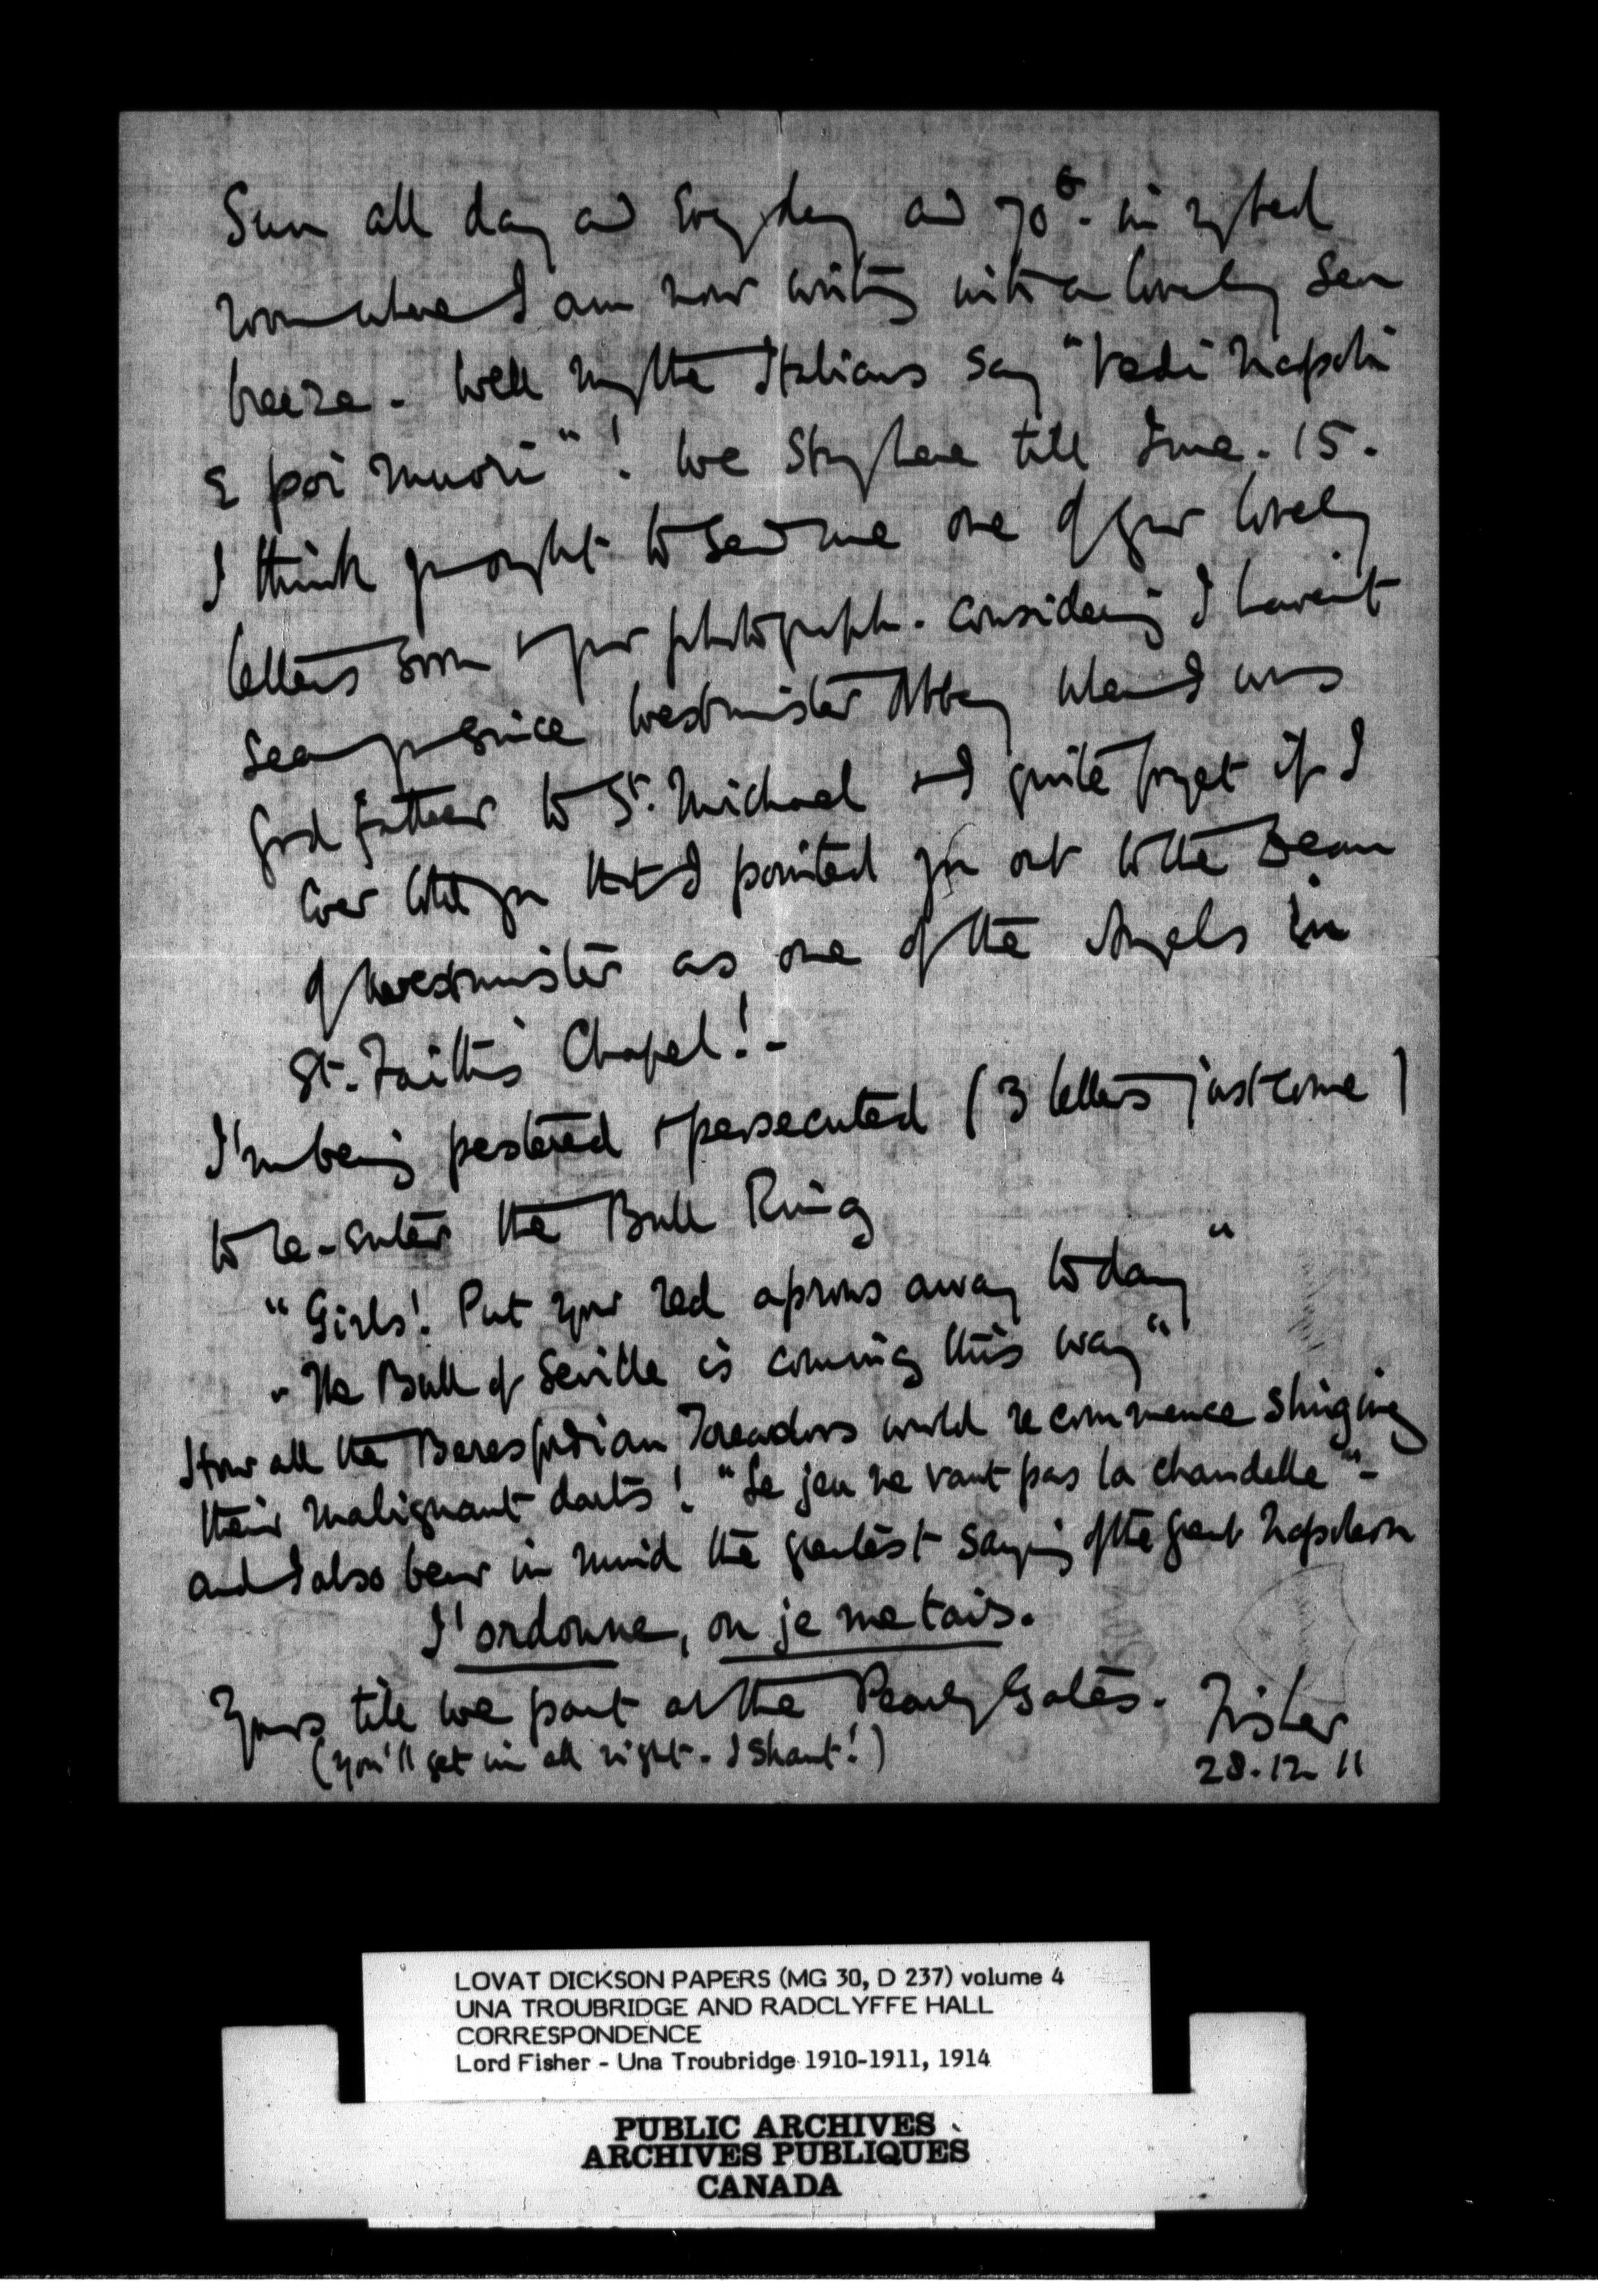 Sun all day and Every day and 70°. in my bed
room where I am now writing with a lovely sea
breeze - Well may the Italians say "Vedi Napoli
E poi muori"! We stay here till June. 15.
I think you ought to send me one of your lovely
letters soon & your photograph. Considering I haven't
seen you since Westminster Abbey when I was
God father to St. Michael & I quite forget if I
Ever told you that I pointed you out to the Dean
of Westminster as one of the Angels in
St. Faith's Chapel! -
I'm being pestered & persecuted (3 letters just come)
to re-enter the Bull Ring
"Girls! Put your red aprons away to day"
"The Bull of Seville is coming this way"
How all the Beresfordian Toreadors would recommence slinging
their malignant darts! "Le jeu ne vaut pas la chandelle" -
and I also bear in mind the greatest saying of the great Napoleon
J'ordonne, ou je me tais.
Yours till we part at the Pearly Gates. Fisher
(You'll get in all right - I shant!)
28.12 11
LOVAT DICKSON PAPERS (MG 30, D 237) volume 4
UNA TROUBRIDGE AND RADCLYFFE HALL
CORRESPONDENCE
Lord Fisher - Una Troubridge 1910-1911, 1914
PUBLIC ARCHIVES
ARCHIVES PUBLIQUES
CANADA